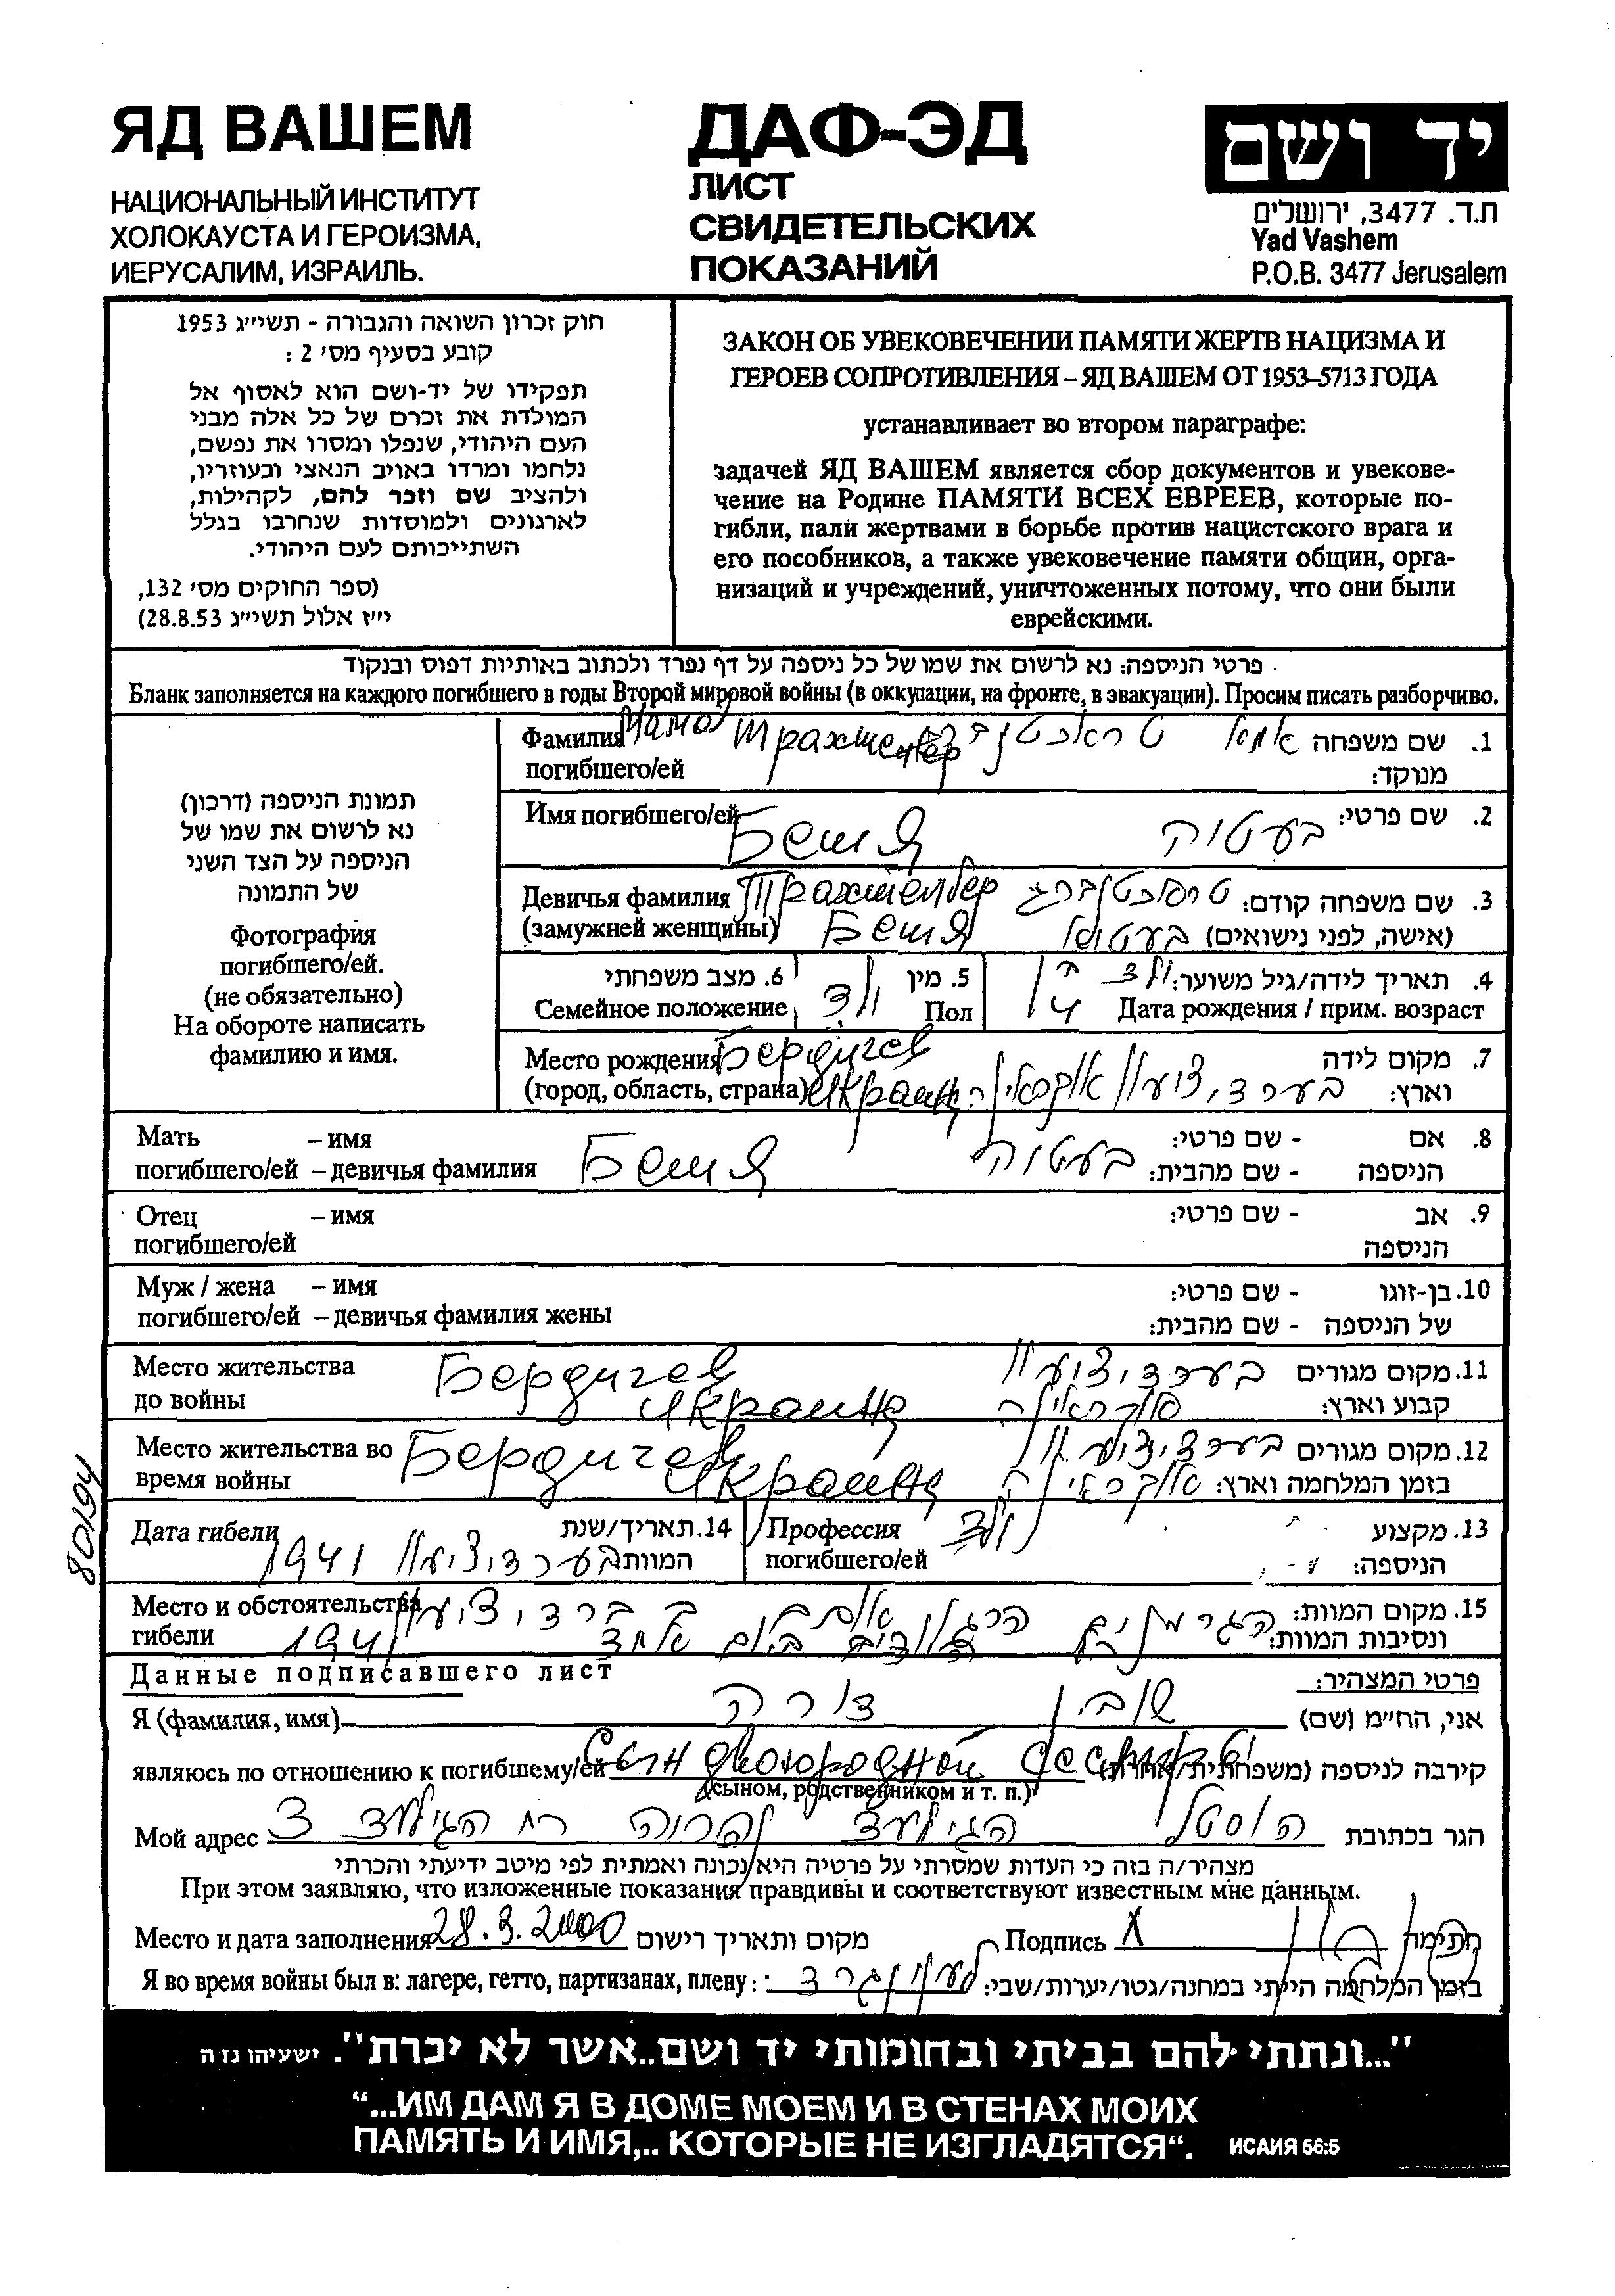 ЯД ВАШЕМ
НАЦИОНАЛЬНЫЙ ИНСТИТУТ
ХОЛОКАУСТА И ГЕРОИЗМА,
ИЕРУСАЛИМ, ИЗРАИЛЬ.
ДАФ-ЭД
ЛИСТ
СВИДЕТЕЛЬСКИХ
ПОКАЗАНИЙ
יד ושם
ת.ד. 3477, ירושלים
Yad Vashem
P.O.B. 3477 Jerusalem
חוק זכרון השואה והגבורה - תשי״ג 1953
קובע בסעיף מס׳ 2 :
תפקידו של יד-ושם הוא לאסוף אל
המולדת את זכרם של כל אלה מבני
העם היהודי, שנפלו ומסרו את נפשם,
נלחמו ומרדו באויב הנאצי ובעוזריו,
ולהציב שם וזכר להם, לקהילות,
לארגונים ולמוסדות שנחרבו בגלל
השתייכותם לעם היהודי.
(ספר החוקים מס׳ 132,
י״ז אלול תשי״ג 28.8.53)
ЗАКОН ОБ УВЕКОВЕЧЕНИИ ПАМЯТИ ЖЕРТВ НАЦИЗМА И
ГЕРОЕВ СОПРОТИВЛЕНИЯ – ЯД ВАШЕМ ОТ 1953–5713 ГОДА
устанавливает во втором параграфе:
задачей ЯД ВАШЕМ является сбор документов и увекове-
чение на Родине ПАМЯТИ ВСЕХ ЕВРЕЕВ, которые по-
гибли, пали жертвами в борьбе против нацистского врага и
его пособников, а также увековечение памяти общин, орга-
низаций и учреждений, уничтоженных потому, что они были
еврейскими.
פרטי הניספה: נא לרשום את שמו של כל ניספה על דף נפרד ולכתוב באותיות דפוס ובנקוד
Бланк заполняется на каждого погибшего в годы Второй мировой войны (в оккупации, на фронте, в эвакуации). Просим писать разборчиво.
תמונת הניספה (דרכון)
נא לרשום את שמו של
הניספה על הצד השני
של התמונה
Фотография
погибшего/ей.
(не обязательно)
На обороте написать
фамилию и имя.
Фамилия Мама 1. שם משפחה אמא
погибшего/ей מנוקד:
Имя погибшего/ей Бетя 2. שם פרטי: בעטיה
Девичья фамилия Трахтенбер 3. שם משפחה קודם:
(замужней женщины) Бетя (אישה, לפני נישואים)
6. מצב משפחתי 5. מין 4. תאריך לידה/גיל משוער:
Семейное положение ילד Пол 4 Дата рождения / прим. возраст
Место рождения Бердичев 7. מקום לידה
(город, область, страна) וארץ:
Мать – имя Бетя 8. אם - שם פרטי: בעטיה
погибшего/ей – девичья фамилия הניספה - שם מהבית:
Отец – имя 9. אב - שם פרטי:
погибшего/ей הניספה
Муж / жена – имя 10. בן-זוגו - שם פרטי:
погибшего/ей – девичья фамилия жены של הניספה - שם מהבית:
Место жительства Бердичев 11. מקום מגורים
до войны קבוע וארץ:
Место жительства во Бердичев 12. מקום מגורים
время войны בזמן המלחמה וארץ:
Дата гибели 14. תאריך/שנת Профессия ילד 13. מקצוע
1941 המוות погибшего/ей הניספה:
Место и обстоятельства 15. מקום המוות: הגרמנים
гибели 1941 ונסיבות המוות:
Данные подписавшего лист פרטי המצהיר:
Я (фамилия, имя) אני, הח״מ (שם)
являюсь по отношению к погибшему/ей двоюродной קירבה לניספה (משפחתית/אחרת)
(сыном, родственником и т. п.)
Мой адрес הוסטל הגילעד נהריה רח הגילעד 3 הגר בכתובת
מצהיר/ה בזה כי העדות שמסרתי על פרטיה היא נכונה ואמתית לפי מיטב ידיעתי והכרתי
При этом заявляю, что изложенные показания правдивы и соответствуют известным мне данным.
Место и дата заполнения 28.3.2000 מקום ותאריך רישום Подпись X חתימה
Я во время войны был в: лагере, гетто, партизанах, плену : לנינגרד בזמן המלחמה הייתי במחנה/גטו/יערות/שבי:
"...ונתתי להם בביתי ובחומותי יד ושם..אשר לא יכרת". ישעיהו נז ה
“...ИМ ДАМ Я В ДОМЕ МОЕМ И В СТЕНАХ МОИХ
ПАМЯТЬ И ИМЯ,.. КОТОРЫЕ НЕ ИЗГЛАДЯТСЯ“. ИСАИЯ 56:5